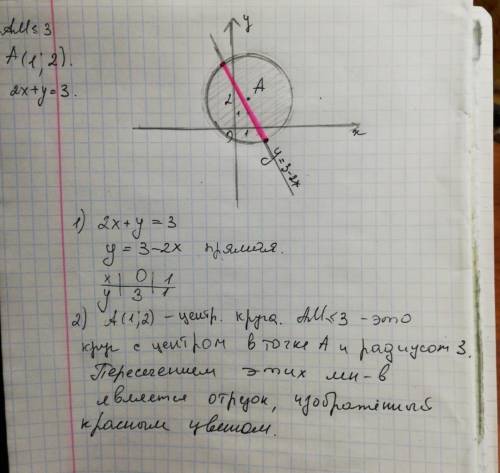 AM≤3
A(1;2).
2x+y=3.
y
A
2
1
0
1
x
y=3-2x
1) 2x+y=3
y=3-2x прямая.
x | 0 | 1
y | 3 | 1
2) A(1;2) - центр. круга. AM≤3 - это
круг с центром в точке A и радиусом 3.
Пересечением этих мн-в
является отрезок, изображённый
красным цветом.